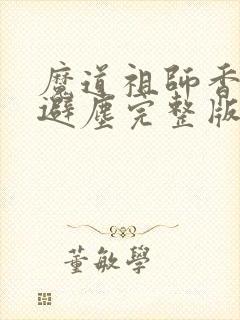 魔道祖師香
避塵完整版
董敏學